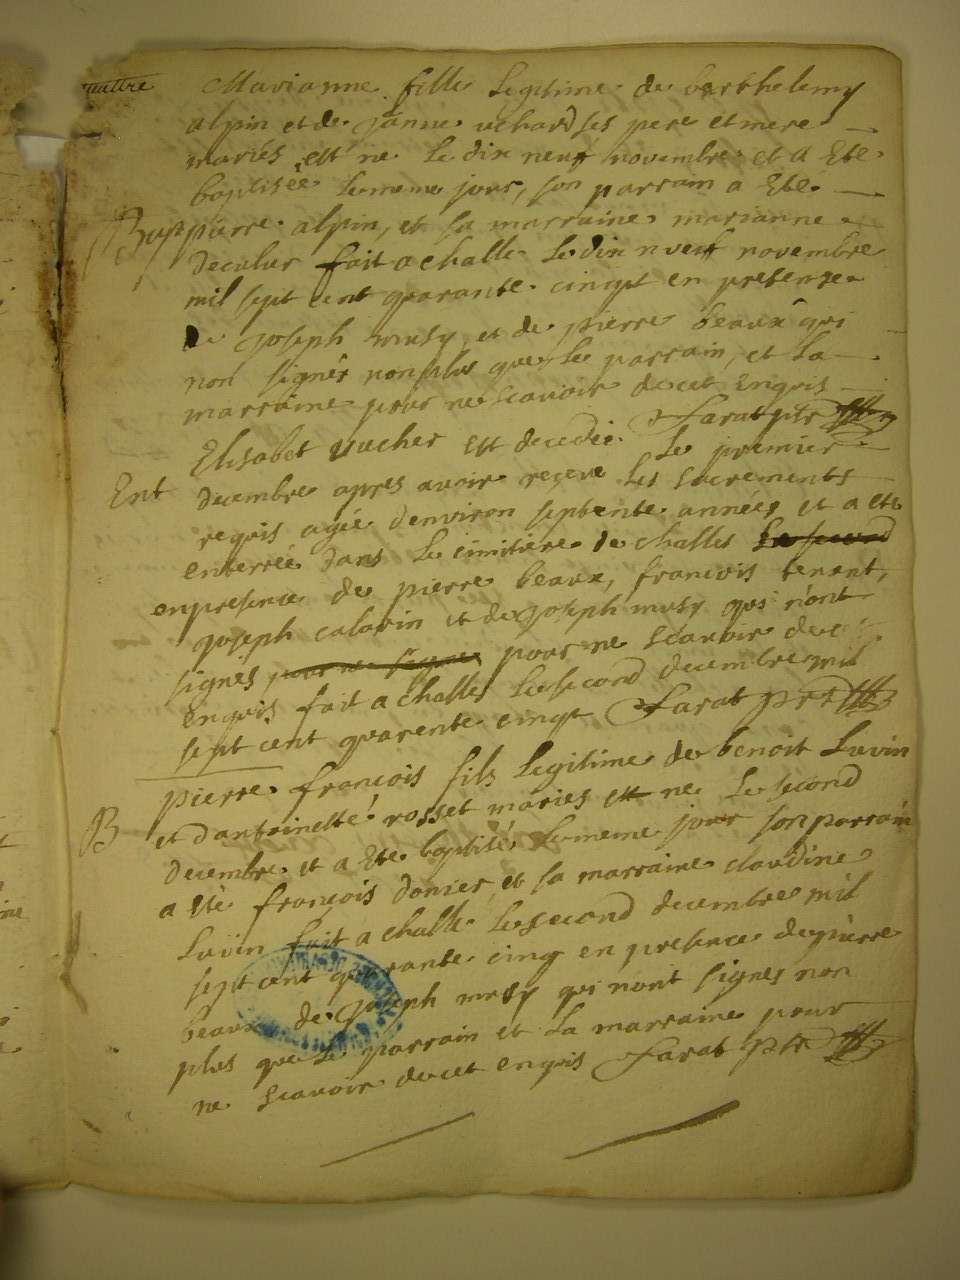 quattre
Marianne fille Legitime de barthelemy
alpin et de janne uchard ses pere et mere
mariés est ne Le dix neuf novembre et a Ete
baptisée Le meme jour, son parrain a Ete
Bap pierre alpin, et sa marraine marianne
deculur fait a challe Le dix neuf novembre
mil sept cent quarante cinqt en presense
De joseph musy, et de pierre beaux qui
non signés non plus que Le parrain, et La
marraine pour ne scavoir de cet Enquis
Farat ptr
Elisabet vucher est decedée Le premier
Ent decembre apres avoir reçeve Les sacrements
requis agée denviron septente années et a ete
enterrée dans Le cimitiere de challes
en presence de pierre beaux, francois tenant,
joseph calavin et de joseph musy qui n'ont
signés pour ne scavoir de ce
enquis fait a challes Le second decembre mil
sept cent quarente cinqt Farat ptr
Pierre francois fils Legitime de benoit Luvin
B et dantoinette rosset maries est ne Le second
decembre et a Ete baptisé Le meme jour son parrain
a Eté françois donier, et sa marraine claudine
Luvin fait a challe Le second decembre mil
sept cent quarante cinq en presence de pierre
beaux de joseph musy qui nont signes non
plus que Le parrain et La marraine pour
ne scavoir de cet enquis Farat ptr